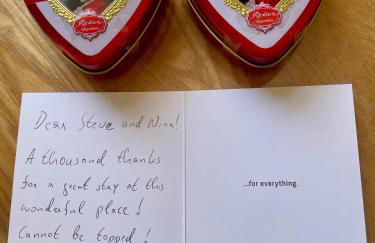 Reber
Reber
Dear Steve and Nina!
A thousand thanks
for a great stay at this
wonderful place!
Cannot be topped!
...for everything.